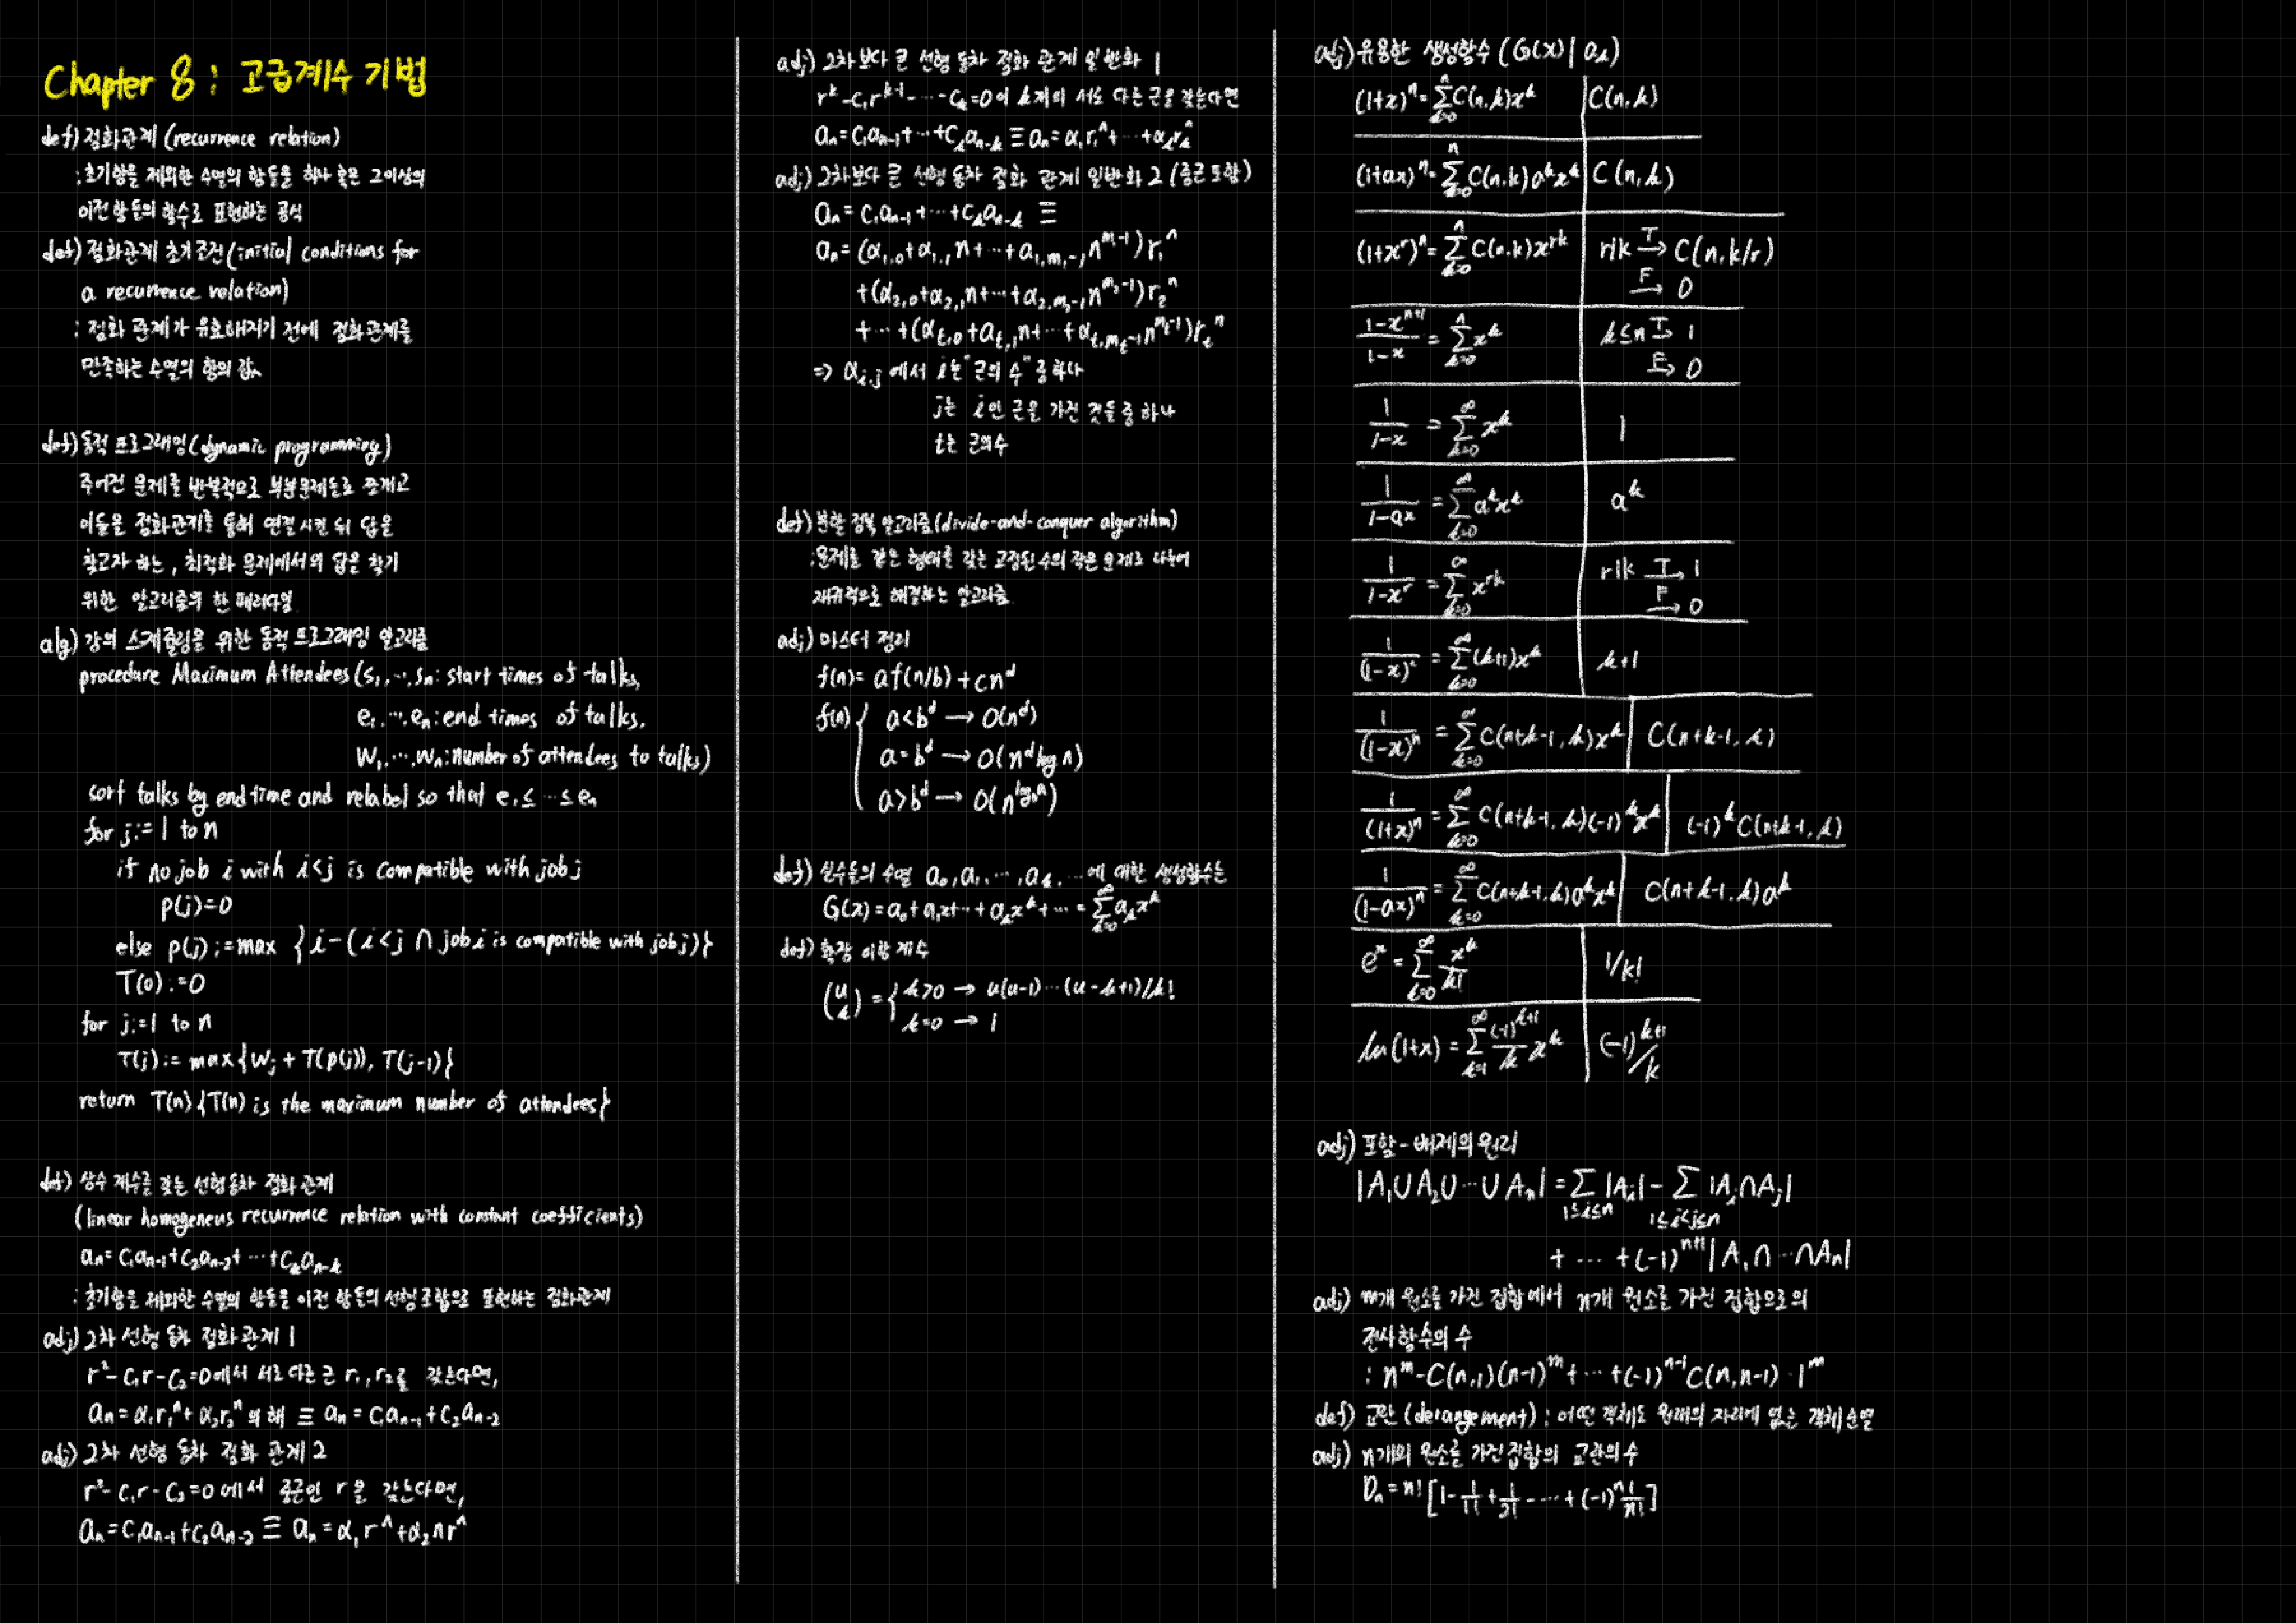 Chapter 8 : 고급계수 기법
def) 점화관계 (recurrence relation)
: 초기항을 제외한 수열의 항들을 하나 혹은 그이상의
이전 항들의 함수로 표현하는 공식
def) 점화관계 초기조건 (initial conditions for
a recurrence relation)
: 점화 관계가 유효해지기 전에 점화관계를
만족하는 수열의 항의 값.
def) 동적 프로그래밍 (dynamic programming)
주어진 문제를 반복적으로 부분문제들로 쪼개고
이들을 점화관계를 통해 연결시킨 뒤 답을
찾고자 하는, 최적화 문제에서의 답을 찾기
위한 알고리즘의 한 패러다임
alg) 강의 스케줄링을 위한 동적 프로그래밍 알고리즘
procedure Maximum Attendees (s₁, ⋯, sₙ: start times of talks,
e₁, ⋯, eₙ: end times of talks,
w₁, ⋯, wₙ: number of attendees to talks)
sort talks by end time and relabel so that e₁ ≤ ⋯ ≤ eₙ
for j := 1 to n
if no job i with i<j is compatible with job j
p(j)=0
else p(j) := max { i - (i<j ∩ job i is compatible with job j)}
T(0) := 0
for j := 1 to n
T(j) := max{wⱼ + T(p(j)), T(j-1)}
return T(n) {T(n) is the maximum number of attendees}
def) 상수 계수를 갖는 선형동차 점화 관계
(linear homogeneus recurrence relation with constant coefficients)
aₙ = c₁aₙ₋₁ + c₂aₙ₋₂ + ⋯ + cₖaₙ₋ₖ
: 초기항을 제외한 수열의 항들을 이전 항들의 선형조합으로 표현하는 점화관계
adj) 2차 선형 동차 점화 관계 1
r² - c₁r - c₂ = 0 에서 서로 다른 근 r₁, r₂를 갖는다면,
aₙ = α₁r₁ⁿ + α₂r₂ⁿ 의 해 ≡ aₙ = c₁aₙ₋₁ + c₂aₙ₋₂
adj) 2차 선형 동차 점화 관계 2
r² - c₁r - c₂ = 0 에서 중근인 r을 갖는다면,
aₙ = c₁aₙ₋₁ + c₂aₙ₋₂ ≡ aₙ = α₁rⁿ + α₂nrⁿ
adj) 2차보다 큰 선형 동차 점화 관계 일반화 1
r^k - c₁r^(k-1) - ⋯ - cₖ = 0 이 k개의 서로 다른 근을 갖는다면
aₙ = c₁aₙ₋₁ + ⋯ + cₖaₙ₋ₖ ≡ aₙ = α₁r₁ⁿ + ⋯ + αₖrₖⁿ
adj) 2차보다 큰 선형 동차 점화 관계 일반화 2 (중근 포함)
aₙ = c₁aₙ₋₁ + ⋯ + cₖaₙ₋ₖ ≡
aₙ = (α_{1,0} + α_{1,1}n + ⋯ + α_{1,m₁-1}n^{m₁-1})r₁ⁿ
+ (α_{2,0} + α_{2,1}n + ⋯ + α_{2,m₂-1}n^{m₂-1})r₂ⁿ
+ ⋯ + (α_{t,0} + α_{t,1}n + ⋯ + α_{t,m_t-1}n^{m_t-1})r_tⁿ
⇒ α_{i,j} 에서 i는 "근의 수" 중 하나
j는 i인 근을 가진 것들 중 하나
t는 근의수
def) 분할 정복 알고리즘 (divide-and-conquer algorithm)
: 문제를 같은 형태를 갖는 고정된 수의 작은 문제로 나누어
재귀적으로 해결하는 알고리즘
adj) 마스터 정리
f(n) = af(n/b) + cn^d
f(n) { a<b^d → O(n^d)
a=b^d → O(n^d log n)
a>b^d → O(n^{log_b a})
def) 실수들의 수열 a₀, a₁, ⋯, aₖ, ⋯ 에 대한 생성함수는
G(x) = a₀ + a₁x + ⋯ + aₖx^k + ⋯ = Σ_{k=0}^∞ aₖx^k
def) 확장 이항 계수
(u k) = { k>0 → u(u-1)⋯(u-k+1)/k!
k=0 → 1
adj) 유용한 생성함수 (G(x) | aₖ)
(1+x)^n = Σ_{k=0}^n C(n,k)x^k | C(n,k)
(1+ax)^n = Σ_{k=0}^n C(n,k)a^k x^k | C(n,k)
(1+x^r)^n = Σ_{k=0}^n C(n,k)x^{rk} | r|k T→ C(n,k/r)
F→ 0
(1-x^{n+1})/(1-x) = Σ_{k=0}^n x^k | k≤n T→ 1
F→ 0
1/(1-x) = Σ_{k=0}^∞ x^k | 1
1/(1-ax) = Σ_{k=0}^∞ a^k x^k | a^k
1/(1-x^r) = Σ_{k=0}^∞ x^{rk} | r|k T→ 1
F→ 0
1/(1-x)² = Σ_{k=0}^∞ (k+1)x^k | k+1
1/(1-x)^n = Σ_{k=0}^∞ C(n+k-1,k)x^k | C(n+k-1,k)
1/(1+x)^n = Σ_{k=0}^∞ C(n+k-1,k)(-1)^k x^k | (-1)^k C(n+k-1,k)
1/(1-ax)^n = Σ_{k=0}^∞ C(n+k-1,k)a^k x^k | C(n+k-1,k)a^k
e^x = Σ_{k=0}^∞ x^k/k! | 1/k!
ln(1+x) = Σ_{k=1}^∞ (-1)^{k+1}/k x^k | (-1)^{k+1}/k
adj) 포함-배제의 원리
|A₁∪A₂∪⋯∪Aₙ| = Σ_{1≤i≤n} |Aᵢ| - Σ_{1≤i<j≤n} |Aᵢ∩Aⱼ|
+ ⋯ + (-1)^{n+1} |A₁∩⋯∩Aₙ|
adj) m개 원소를 가진 집합에서 n개 원소를 가진 집합으로의
전사함수의 수
: n^m - C(n,1)(n-1)^m + ⋯ + (-1)^{n-1} C(n,n-1)·1^m
def) 교란 (derangement) : 어떤 객체도 원래의 자리에 없는 객체순열
adj) n개의 원소를 가진집합의 교란의 수
Dₙ = n! [1 - 1/1! + 1/2! - ⋯ + (-1)^n 1/n!]